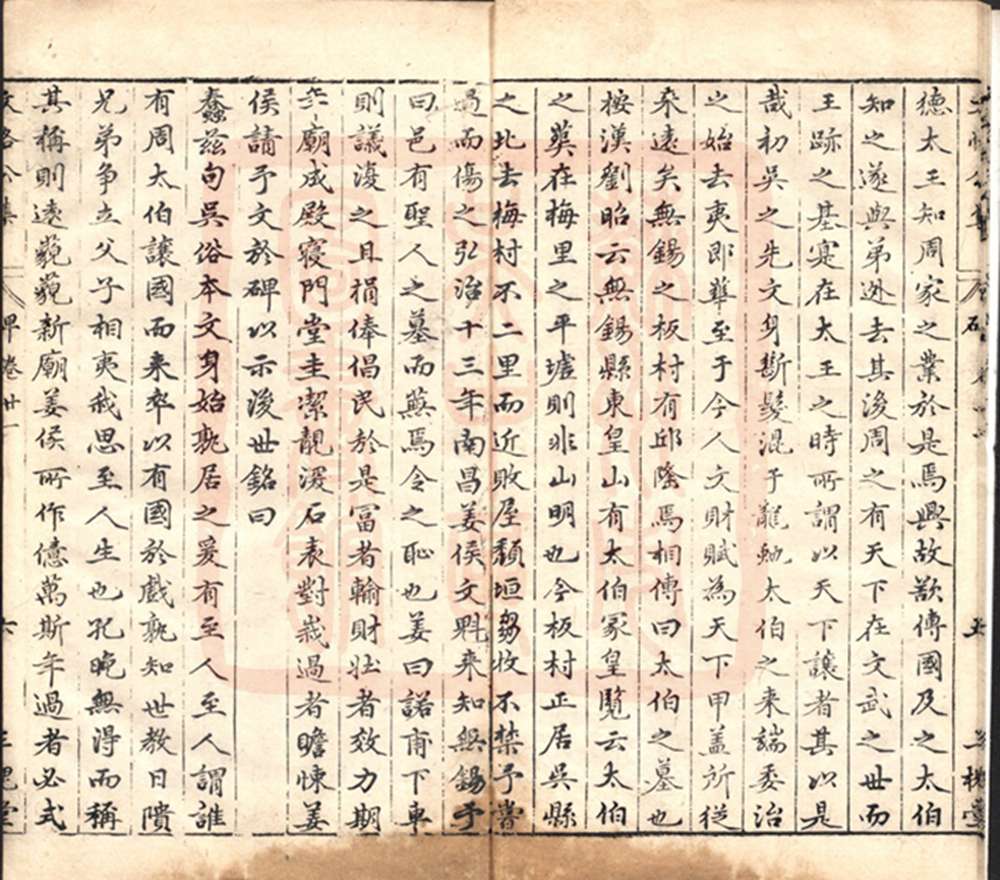 德太王知周家之業於是焉興故欲傳國及之太伯
知之遂與弟逊去其後周之有天下在文武之世而
王跡之基寔在太王之時所謂以天下讓者其以是
哉初吳之先文身斷髮混于龍虵太伯之来端委治
之始去夷即華至于今人文財賦為天下甲盖所從
来逺矣無錫之板村有邱隆焉相傳曰太伯之墓也
按漢劉昭云無錫縣東皇山有太伯冢皇覽云太伯
之葬在梅里之平墟則非山明也今板村正居吳縣
之北去梅村不二里而近敗屋頽垣芻牧不禁予嘗
過而傷之弘治十三年南昌姜侯文魁来知無錫予
曰邑有聖人之墓而蕪焉令之恥也姜曰諾甫下車
則議復之且捐俸倡民於是冨者輸財壮者效力期
年廟成殿寢門堂圭潔靚深石表對峩過者瞻悚姜
侯請予文於碑以示後世銘曰
蠢兹句吳俗本文身始孰居之爰有至人至人謂誰
有周太伯讓國而来卒以有國於戲孰知世教日隤
兄弟争立父子相夷我思至人生也孔晚無淂而稱
其稱則逺藐藐新廟姜侯所作億萬斯年過者必式
文恪公集 碑卷廿一 六 三槐堂